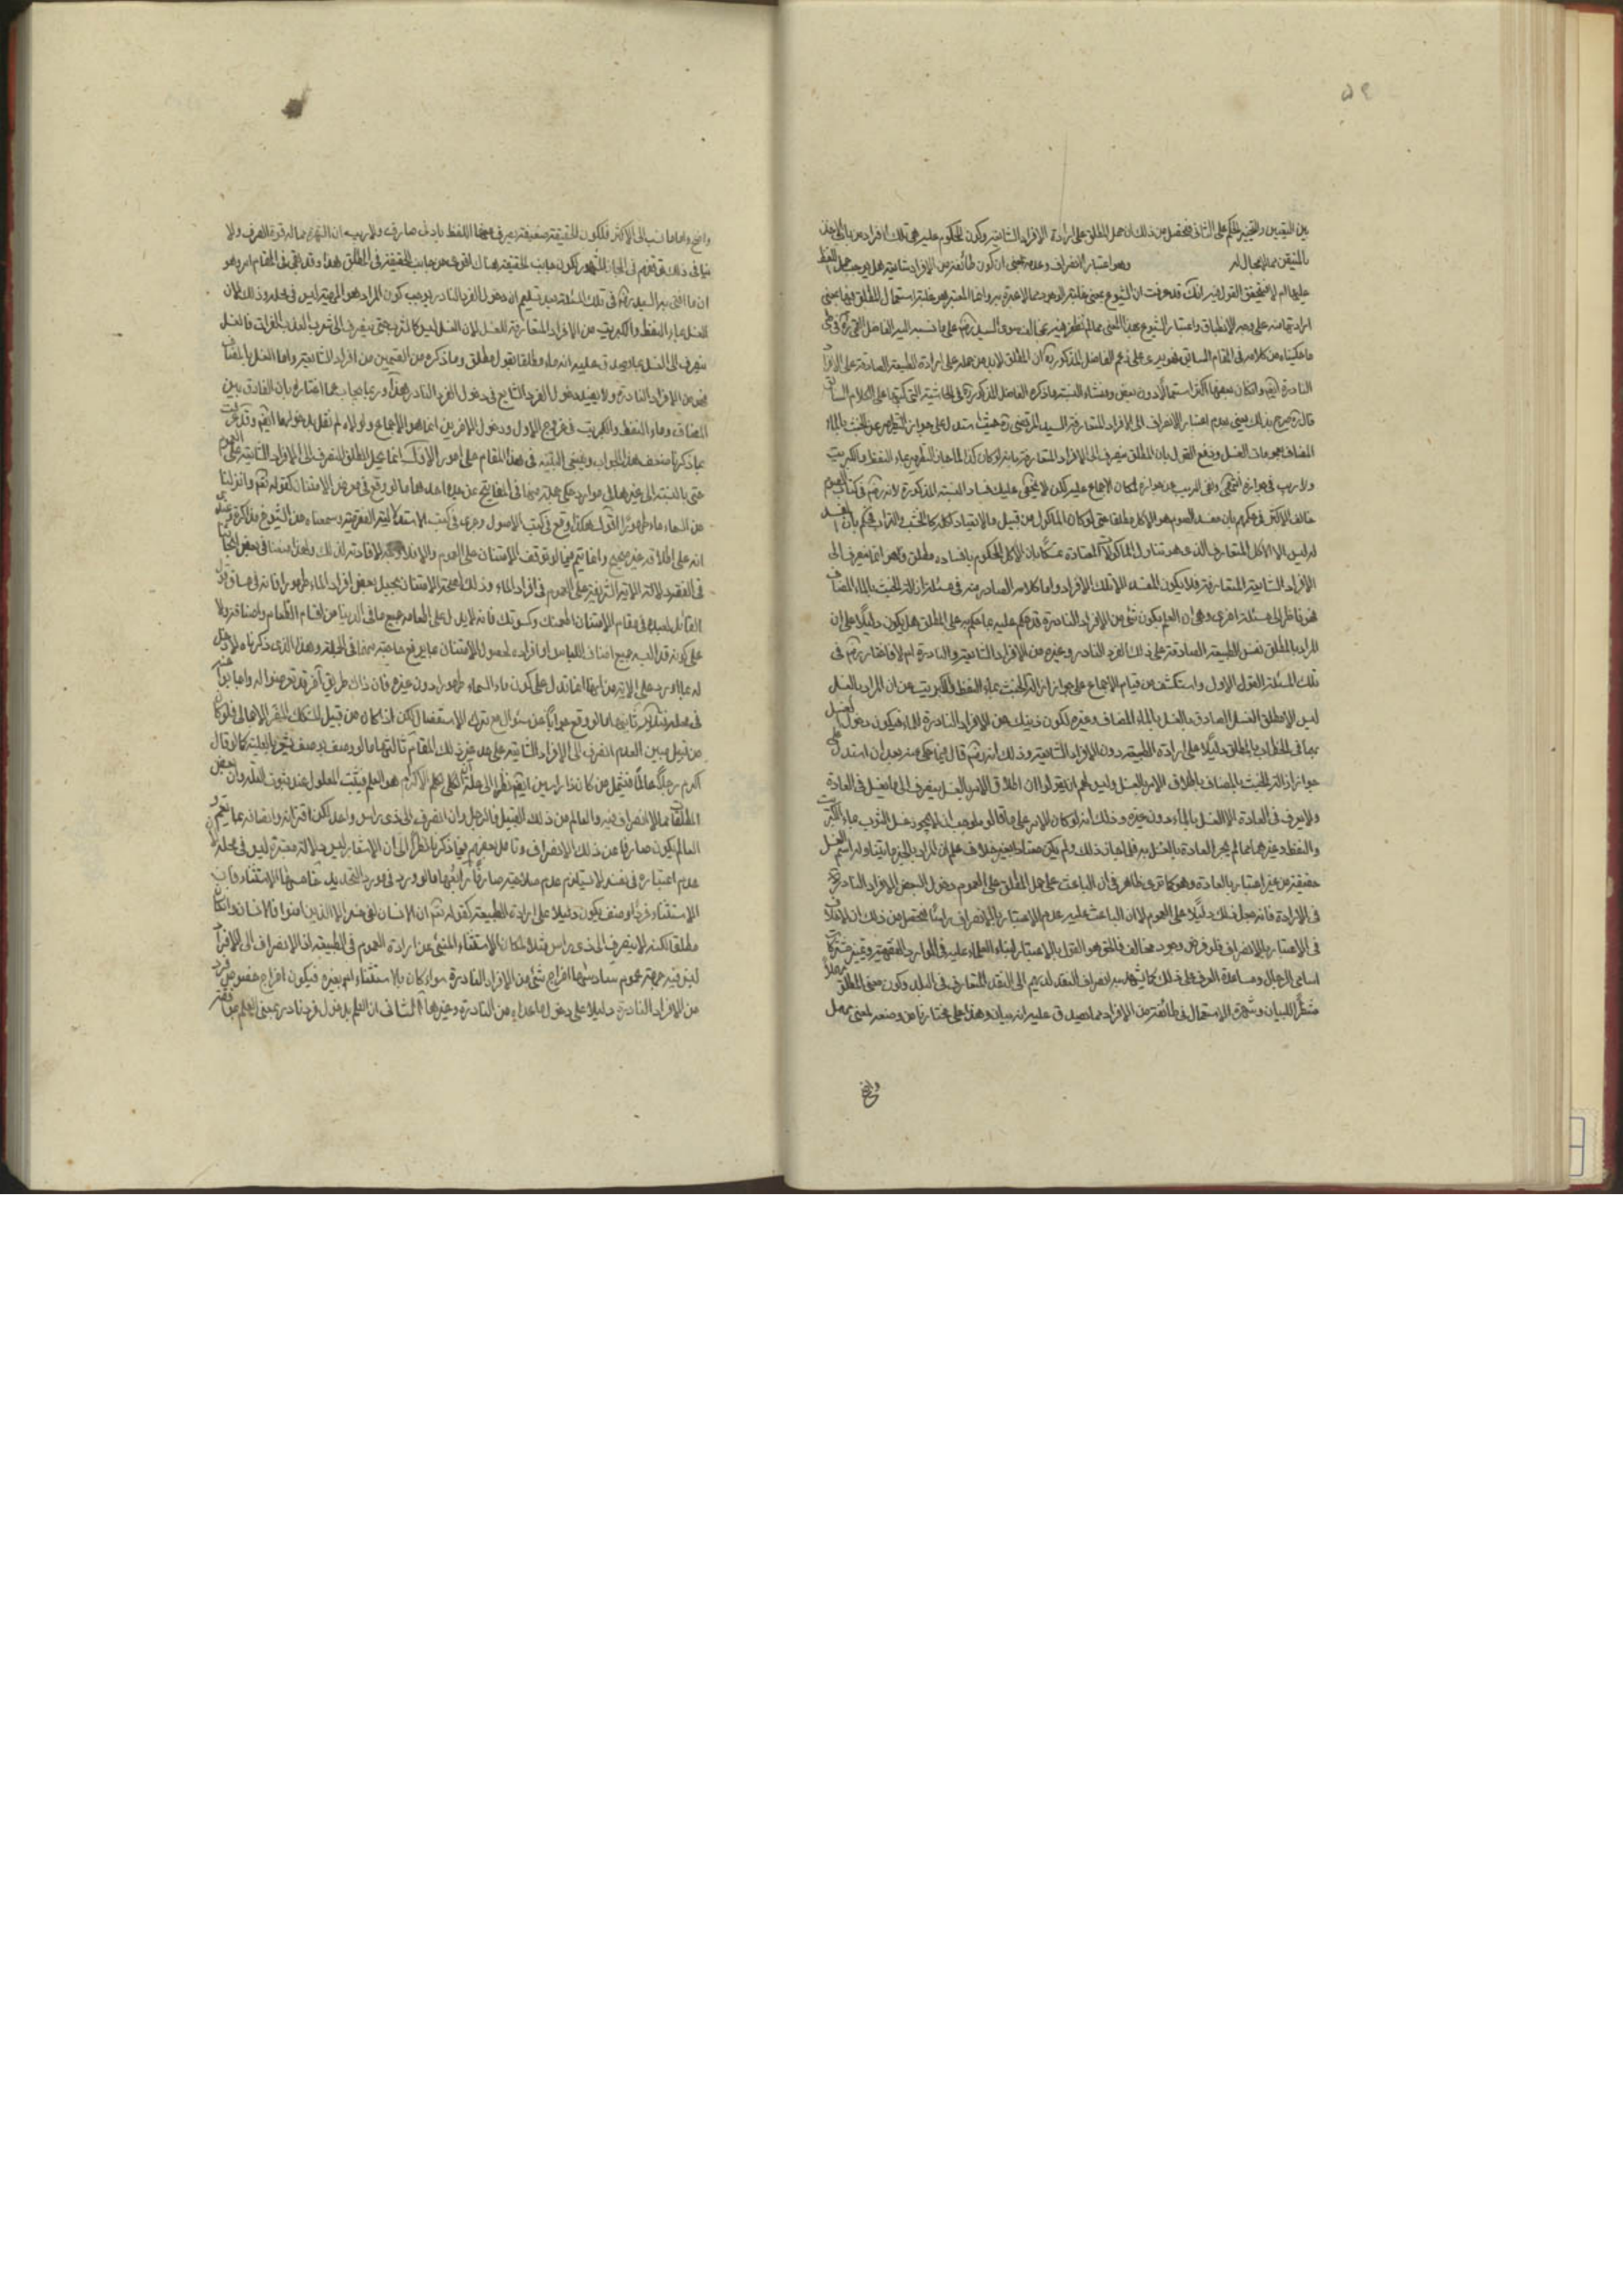 ٥٩
بين اليقين والتخيير الحكم على الثانى فتحصل من ذلك ان حمل المطلق على ارادة الافراد الشايعة وكون المحكوم عليه هى تلك الافراد من باب الاخذ
بالمتيقن مما لا مجال له وهو اعتبار الانصراف وعدمه بمعنى ان كون طائفة من الافراد شايعة هل يوجب حمل اللفظ
عليها ام لا فتحقيق القول فيه انك قد عرفت ان الشيوع بمعنى غلبة الوجود مما لا عبرة به وانما المعتبر هو غلبة استعمال المطلق فيها بمعنى
ارادتها منه على وجه الانطباق واعتبار الشيوع بهذا المعنى مما لم نظفر فيه بمخالف سوى السيد على ما نسبه اليه الفاضل
ما حكيناه من كلامه فى المقام السابق فهو يدعى على زعم الفاضل المذكور ان المطلق لابد من حمله على ارادة الطبيعة الصادقة على الافراد
النادرة ايضا وان كان بعضها اكثر استعمالا دون بعض ومنشاء النسبة ما ذكره الفاضل المذكور فى الحاشية التى كتبها على الكلام السابق
قال صرح بذلك يعنى بعدم اعتبار الانصراف الى الافراد المتعارفة السيد المرتضى حيث استدل على جواز التطهير عن الخبث بالماء
المضاف بعمومات الغسل ودفع القول بان المطلق ينصرف الى الافراد المتعارفة بانه لو كان كذا لما جاز التطهير بماء النفط والكبريت
ولا ريب فى جوازه انتهى ونفى الريب عن جوازه لمكان الاجماع عليه لكن لا يخفى عليك فساد النسبة المذكورة لانه فى كتاب الصوم
خالف الاكثر فى حكمهم بان مفسد الصوم هو الاكل مطلقا حتى لو كان الماكول من قبيل ما لا يعتاد اكله كالخشب والتراب فحكم بان المفسد
له ليس الا الاكل المتعارف الذى هو تناول الماكولات المعتادة تمسكا بان الاكل المحكوم بافساده مطلق وهو انما ينصرف الى
الافراد الشايعة المتعارفة فلا يكون المفسد الا تلك الافراد واما كلامه الصادر منه فى مسئلة ازالة الخبث بالماء المضاف
فهو ناظر الى مسئلة اخرى وهى ان العلم بكون شئ من الافراد النادرة قد حكم عليه بما حكم به على المطلق هل يكون دليلا على ان
المراد بالمطلق نفس الطبيعة الصادقة على ذلك الفرد النادر وغيره من الافراد الشايعة والنادرة ام لا فاختار فى
تلك المسئلة القول الاول واستكشف من قيام الاجماع على جواز ازالة الخبث بماء النفط والكبريت من ان المراد بالغسل
ليس الا مطلق الغسل الصادق بالغسل بالماء المضاف وغيره لكون ذينك من الافراد النادرة للماء فيكون دخول الغسل
بهما فى الخطاب بالمطلق دليلا على ارادة الطبيعة دون الافراد الشايعة وذلك انه قال فيما حكى عنه بعد ان استدل على
جواز ازالة الخبث بالمضاف باطلاق الامر بالغسل وليس لهم ان يقولوا ان اطلاق الامر بالغسل ينصرف الى ما يغسل فى العادة
ولا يعرف فى العادة الا الغسل بالماء دون غيره وذلك انه لو كان الامر على ما قالوه لوجب ان لا يجوز غسل الثوب بماء الكبريت
والنفط وغيرهما مما لم يجر العادة بالغسل به فلما جاز ذلك ولم يكن معتادا بغير خلاف علم ان المراد بالخبر ما يتناوله اسم الغسل
حقيقة من غير اعتبار بالعادة وهو كما ترى ظاهر فى ان الباعث على حمل المطلق على العموم دخول البعض الافراد النادرة
فى الارادة فانه جعل ذلك دليلا على العموم لا ان الباعث عليه عدم الاعتبار بالانصراف راسا فتحصل من ذلك ان لا خلاف
فى الاعتبار بالانصراف فلو فرض وجود مخالف فالحق هو القول بالاعتبار لبناء العلماء عليه فى الموارد الفقهية وتمييز مشتركات
اسامى الرجال ومساعدة العرف على ذلك كما يشهد به انصراف النقد لديهم الى النقد المتعارف فى البلد وكون معنى المطلق
منتظرا للبيان وشهرة الاستعمال فى طائفة من الافراد مما يصدق عليه انه بيان وهذا على مختارنا من وضعه لمعنى مهمل
واضح
واضح واما ما نسب الى الاكثر فلكون الحقيقة حقيقة يصرف عنها اللفظ بادنى صارف ولا ريب ان الشهرة مما له قوة الصرف ولا
ينافى ذلك توقفهم فى المجاز المشهور لكون جانب الحقيقة هناك اقوى من جانب الحقيقة فى المطلق هذا وقد بقى فى المقام امر وهو
ان ما افتى به السيد فى تلك المسئلة بعد تسليم ان دخول الفرد النادر يوجب كون المراد هو المهية ليس فى محله وذلك لان
الغسل بماء النفط والكبريت من الافراد المتعارفة للغسل لان الغسل ليس كالشرب حتى ينصرف الى شرب العذب الفرات فالغسل
ينصرف الى الغسل بما يصدق عليه انه ماء مطلقا بقول مطلق وما ذكره من القسمين من افراده الشايعة واما الغسل بالمضاف
فهو من الافراد النادرة ولا يفيد دخول الفرد الشايع فى دخول الفرد النادر هذا وربما يجاب عما اختاره بان الفارق بين
المضاف وماء النفط والكبريت فى خروج الاول ودخول الاخرين انما هو الاجماع ولولاه لم نقل بدخولهما ايضا وقد عرفت
بما ذكرنا ضعف هذا الجواب وينبغى التنبيه فى هذا المقام على امور الاول انما يحمل المطلق المنصرف الى الافراد الشايعة على العموم
حتى بالنسبة الى غيرها فى موارد حكى جملة منها فى المفاتيح عن جده احدها ما لو وقع فى معرض الامتنان كقوله تعالى وانزلنا
من السماء ماء طهورا اقول هكذا وقع فى كتب الاصول وجرى فى كتب الاستدلالية الفقهية وسمعناه من الشيوخ مذاكرة
انه على اطلاقه غير صحيح وانما يتم فيما لو توقف الامتنان على العموم والا فلا وجه لافادته ذلك ولهذا منعنا فى بعض
فى الفقه دلالة الاية الشريفة على العموم فى افراد الماء وذلك لصحة الامتنان بجعل بعض افراد الماء طهورا فانه فى مساق قول
القائل لعبده فى مقام الامتنان اطعمتك وكسوتك فانه لا يدل على اطعامه جميع ما فى الدنيا من اقسام الطعام واصنافه ولا
على كونه قد البسه جميع اصناف اللباس او افراده لحصول الامتنان بما يرفع حاجته منها فى الجملة وهذا الذى ذكرناه لا دخل
له بما اورد على الاية من انها انما تدل على كون ماء السماء طهورا دون غيره فان ذاك طريق اخر قد تعرضنا له
فى محله ثانيها ما لو وقع جوابا عن سؤال مع ترك الاستفصال لكن اذا كان من قبيل المشكك المضر الاجمالى فلو كان
من قبيل مبين العدم انصرف الى الافراد الشايعة على حد غير ذلك المقام ثالثها ما لو وصف بوصف مشعر بالعلية كما لو قال
اكرم رجلا عالما فيشمل من كان ذا راسين ايضا نظرا الى ان علة الاكرام هو العلم فيثبت المعلول عند ثبوت العلة وان بعض
المطلقات مما لا انصراف فيه والعالم من ذلك القبيل فالرجل وان انصرف الى ذى راس واحد لكن اقترانه واتصافه بما يعم
العالم يكون صارفا عن ذلك الانصراف وتامل بعضهم فيما ذكرنا نظرا الى ان الاشعار ليس دلالة معتبرة ليس فى محله
عدم اعتباره فى نفسه لا يستلزم عدم صلاحيته صارفا رابعها ما لو ورد فى مورد التحديد خامسها الاستثناء فباب
الاستثناء فردا او صنف يكون دليلا على ارادة الطبيعة كقوله تعالى ان الانسان لفى خسر الا الذين امنوا فالانسان وان كان
مطلقا لكنه لا ينصرف الى ذى راس مثلا لمكان الاستثناء المنبئ عن ارادة العموم فى الطبيعة اذ الانصراف الى الافراد
ليس فيه جهة عموم سادسها اخراج شئ من الافراد النادرة سواء كان بالاستثناء ام بغيره فيكون اخراج خصوص فرد
من الافراد النادرة دليلا على دخول ما عداه من النادرة وغيرها الثانى ان العلم بدخول فرد نادر بمعنى العلم